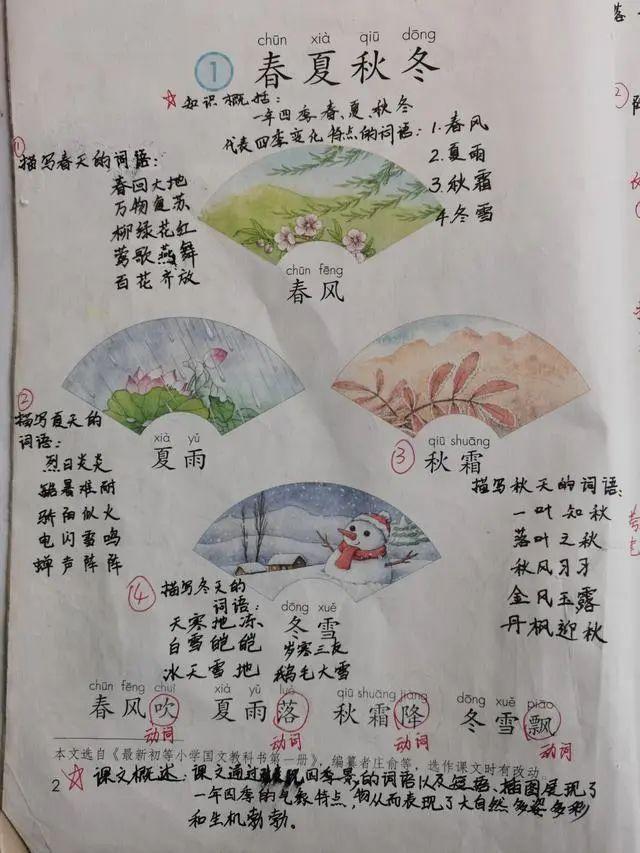 chūn xià qiū dōng
1 春夏秋冬
☆知识概括:
一年四季:春、夏、秋、冬
代表四季变化特点的词语:1.春风
2.夏雨
3.秋霜
4.冬雪
① 描写春天的词语:
春回大地
万物复苏
柳绿花红
莺歌燕舞
百花齐放
chūn fēng
春风
② 描写夏天的
词语:
烈日炎炎
酷暑难耐
骄阳似火
电闪雷鸣
蝉声阵阵
xià yǔ
夏雨
③
qiū shuāng
秋霜
描写秋天的词语:
一叶知秋
落叶之秋
秋风习习
金风玉露
丹枫迎秋
④ 描写冬天的
词语:
天寒地冻
白雪皑皑
冰天雪地
dōng xuě
冬雪
岁寒三友
鹅毛大雪
chūn fēng chuī xià yǔ luò qiū shuāng jiàng dōng xuě piāo
春风吹 夏雨落 秋霜降 冬雪飘
动词 动词 动词 动词
本文选自《最新初等小学国文教科书第一册》,编纂者庄俞等,选作课文时有改动
2 ☆课文概述:课文通过 四季景的词语以及短语、插图展现了
一年四季的气象特点,物从而表现了大自然多姿多彩
和生机勃勃。